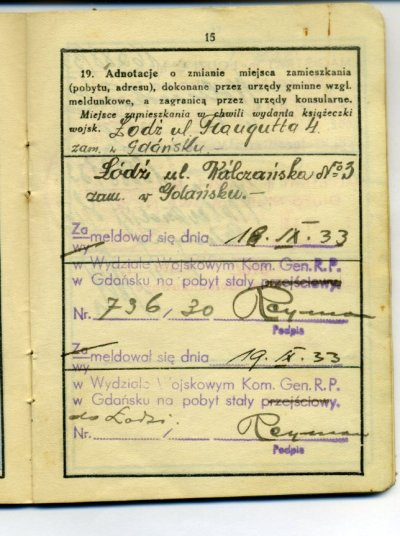 15
19. Adnotacje o zmianie miejsca zamieszkania
(pobytu, adresu), dokonane przez urzędy gminne wzgl.
meldunkowe, a zagranicą przez urzędy konsularne.
Miejsce zamieszkania w chwili wydania książeczki
wojsk. Łódź ul. Traugutta 4.
zam. w Gdańsku.–
Łódź ul. Wálczańska № 3
zam. w Gdańsku.–
Za
wy
meldował się dnia 18. IX. 33
w Wydziale Wojskowym Kom. Gen. R. P.
w Gdańsku na pobyt stały przejściowy.
Nr. 736/30 Reyman
Podpis
Za
wy
meldował się dnia 19. IX. 33
w Wydziale Wojskowym Kom. Gen. R. P.
w Gdańsku na pobyt stały przejściowy.
do Łodzi.
Nr. / Reyman
Podpis